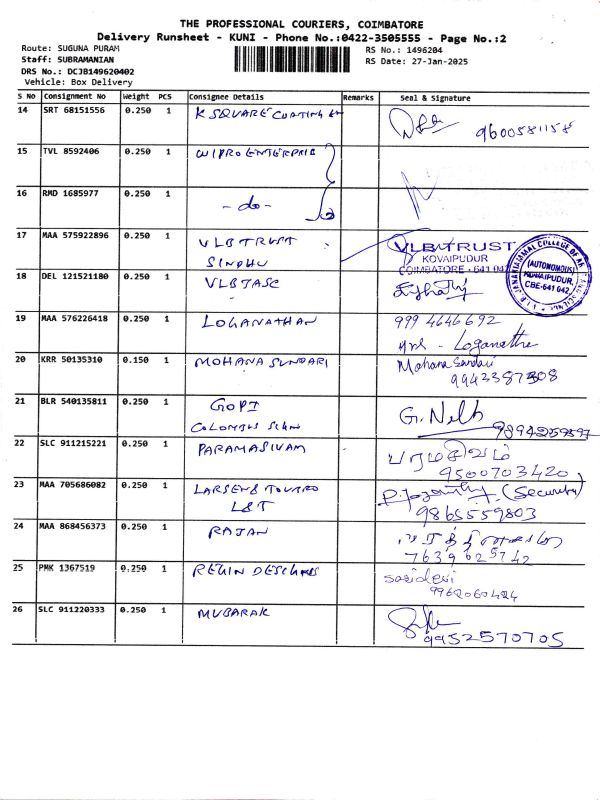 THE PROFESSIONAL COURIERS, COIMBATORE
Delivery Runsheet - KUNI - Phone No.:0422-3505555 - Page No.:2
Route: SUGUNA PURAM
RS No.: 1496204
Staff: SUBRAMANIAN
RS Date: 27-Jan-2025
DRS No.: DCJB149620402
Vehicle: Box Delivery
S No Consignment No Weight PCS Consignee Details Remarks Seal & Signature
14 SRT 68151556 0.250 1 K SQUARE 9600581158
15 TVL 8592406 0.250 1 WIPRO
16 RMD 1685977 0.250 1 - do -
17 MAA 575922896 0.250 1 VLB TRUST VLB TRUST
SINDHU KOVAIPUDUR
COIMBATORE - 641 042
(AUTONOMOUS)
KOVAIPUDUR,
CBE-641 042.
18 DEL 121521180 0.250 1 VLBJASC
19 MAA 576226418 0.250 1 LOGANATHAN 999 4646692
- Loganathan
20 KRR 50135310 0.150 1 MOHANA SUNDARI Mohana Sundari
9943387308
21 BLR 540135811 0.250 1 GOPI G.
COLOMBUS 9894259597
22 SLC 911215221 0.250 1 PARAMASIVAM பரமசிவம்
9500703420
23 MAA 705686082 0.250 1 LARSEN & TOUBRO (Security)
L&T 9865559803
24 MAA 868456373 0.250 1 RAJAN
7639625742
25 PMK 1367519 0.250 1 saridevi
9962060484
26 SLC 911220333 0.250 1 MUBARAK
9952570705